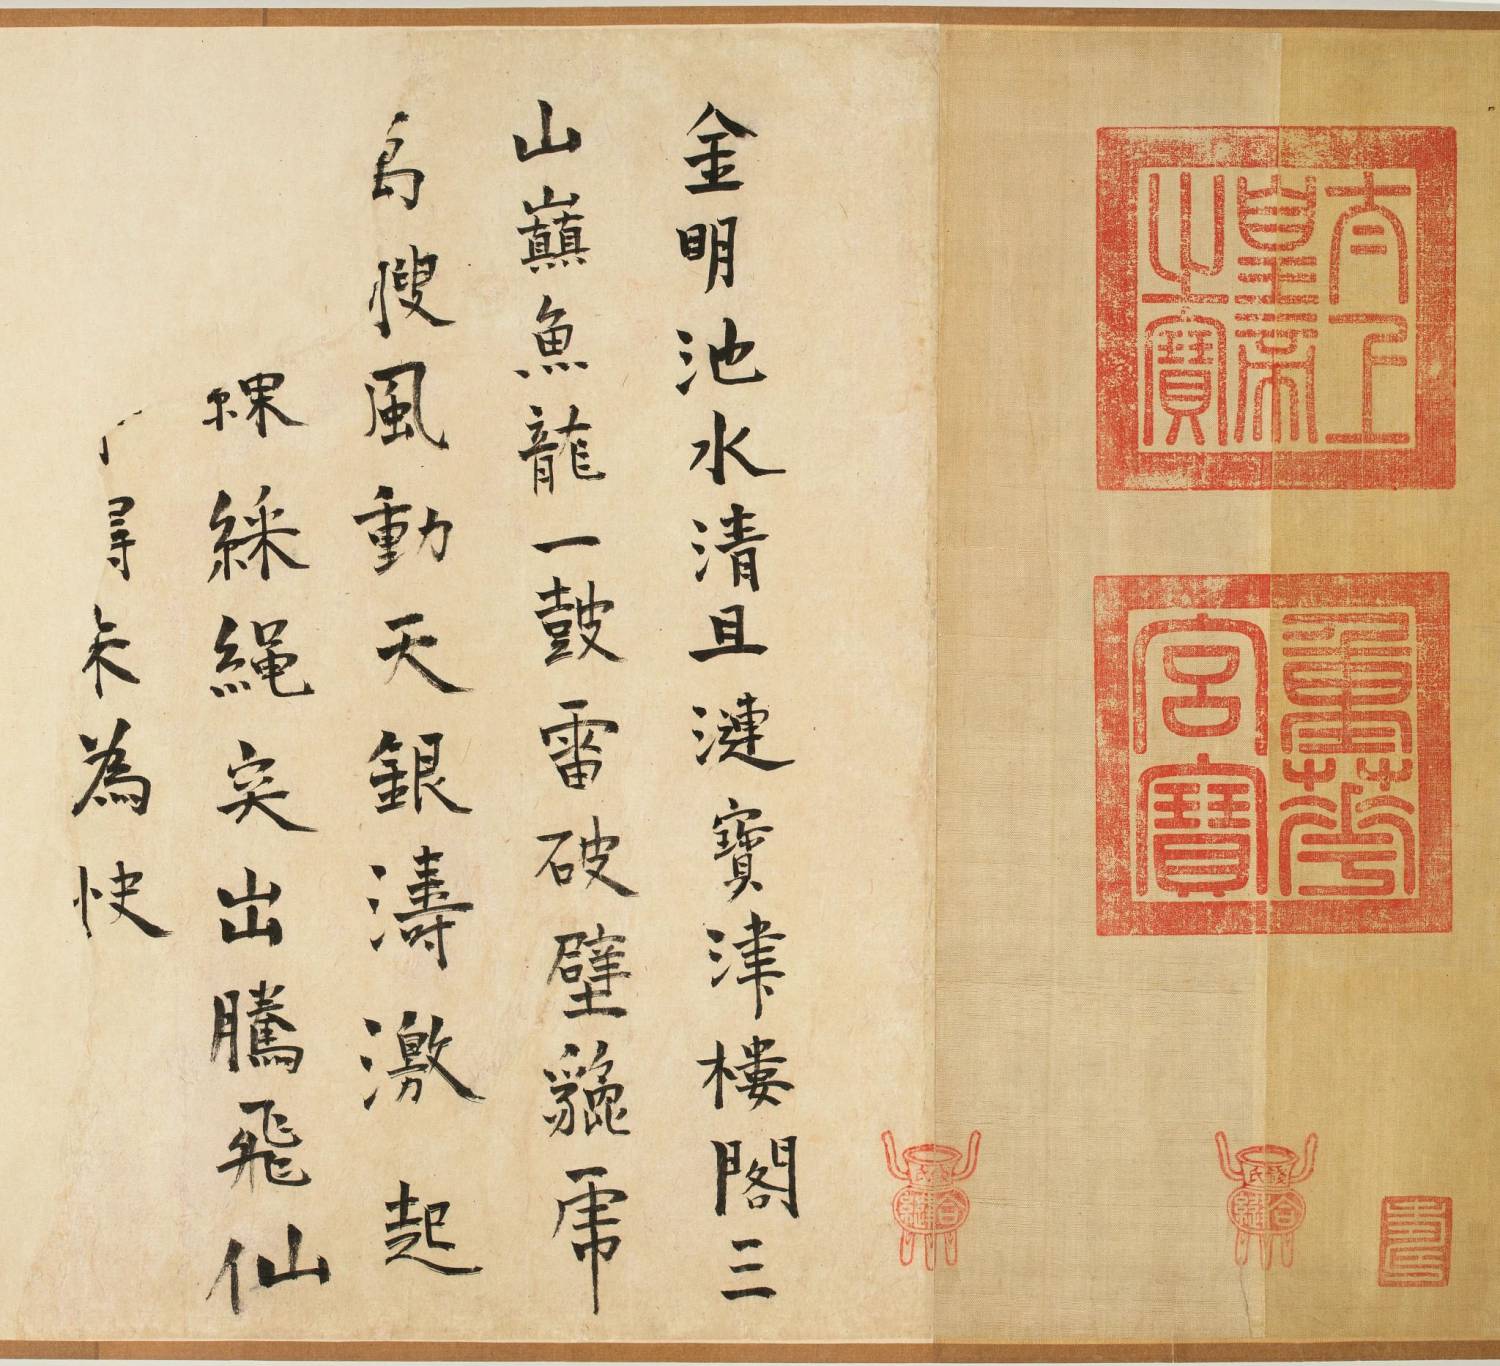 太上
皇帝
之寶
重華
宮寶
金明池水清且漣寶津樓閣三
山巔魚龍一鼓雷破壁貔乕
㥰風動天銀濤激起
綵繩突出騰飛仙
尋未為快